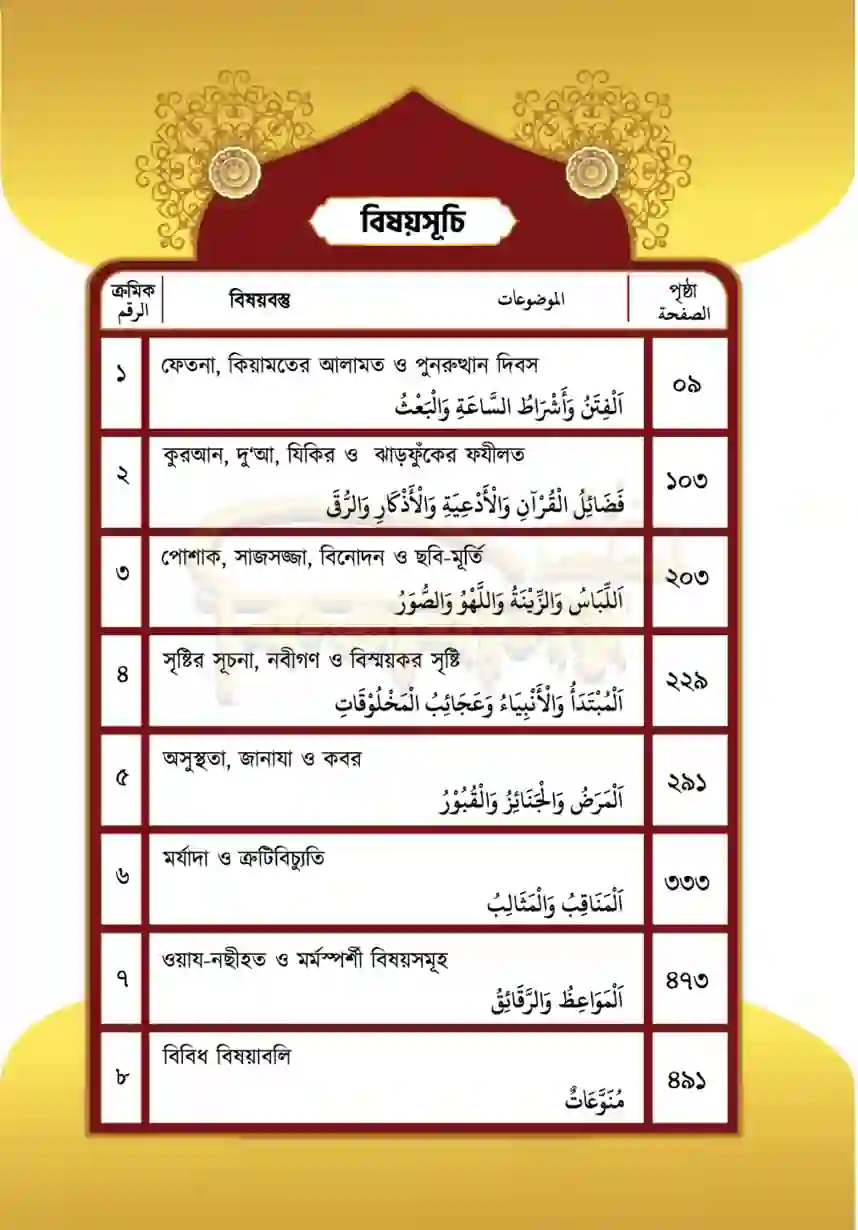 বিষয়সূচি
ক্রমিক
الرقم
বিষয়বস্তু
الموضوعات
পৃষ্ঠা
الصفحة
১
ফেতনা, কিয়ামতের আলামত ও পুনরুত্থান দিবস
اَلْفِتَنُ وَأَشْرَاطُ السَّاعَةِ وَالْبَعْثُ
০৯
২
কুরআন, দু‘আ, যিকির ও ঝাড়ফুঁকের ফযীলত
فَضَائِلُ الْقُرْآنِ وَالْأَدْعِيَةِ وَالْأَذْكَارِ وَالرُّقَى
১০৩
৩
পোশাক, সাজসজ্জা, বিনোদন ও ছবি-মূর্তি
اَللِّبَاسُ وَالزِّيْنَةُ وَاللَّهْوُ وَالصُّوَرُ
২০৩
৪
সৃষ্টির সূচনা, নবীগণ ও বিস্ময়কর সৃষ্টি
اَلْمُبْتَدَأُ وَالْأَنْبِيَاءُ وَعَجَائِبُ الْمَخْلُوْقَاتِ
২২৯
৫
অসুস্থতা, জানাযা ও কবর
اَلْمَرَضُ وَالْجَنَائِزُ وَالْقُبُوْرُ
২৯১
৬
মর্যাদা ও ত্রুটিবিচ্যুতি
اَلْمَنَاقِبُ وَالْمَثَالِبُ
৩৩৩
৭
ওয়ায-নছীহত ও মর্মস্পর্শী বিষয়সমূহ
اَلْمَوَاعِظُ وَالرَّقَائِقُ
৪৭৩
৮
বিবিধ বিষয়াবলি
مُنَوَّعَاتٌ
৪৯১